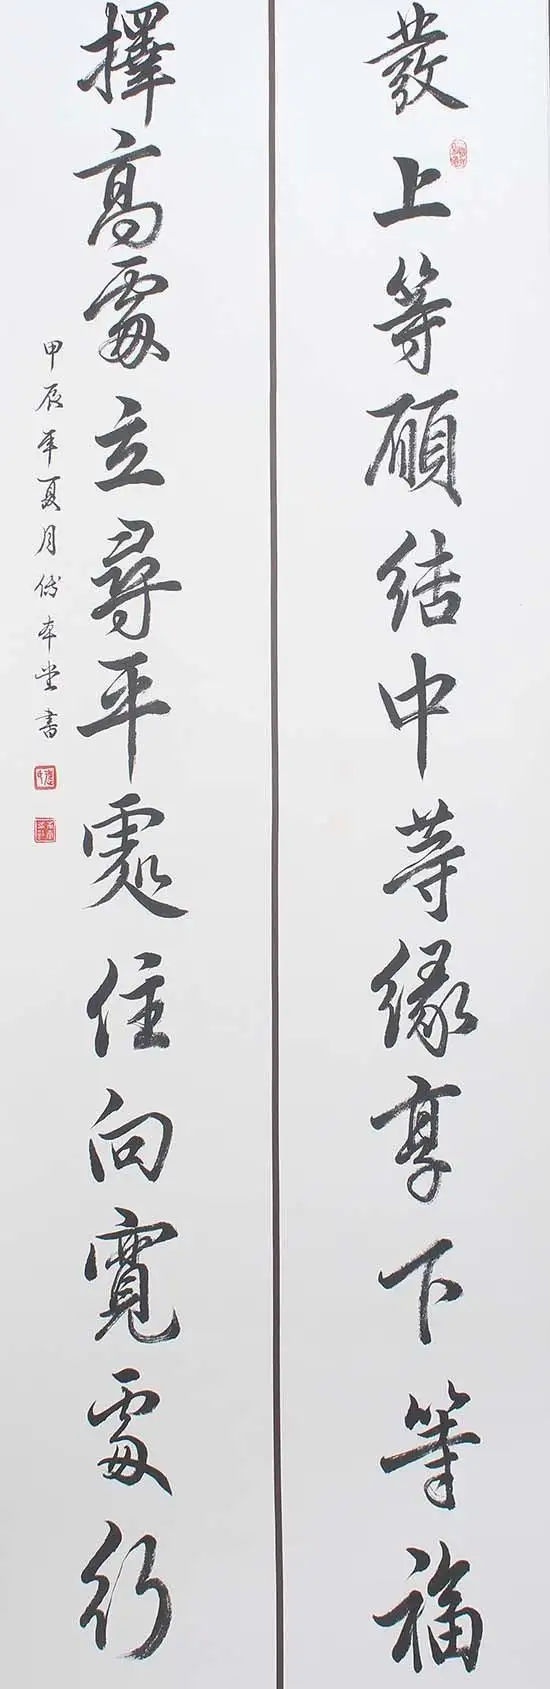 發上等願結中等緣享下等福
擇高處立尋平處住向寬處行
甲辰年夏月傅本堂書